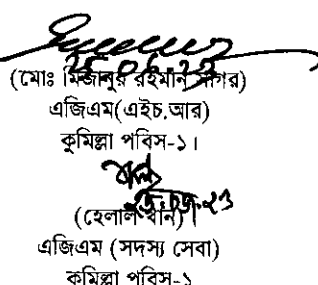 ২৫.০৬.২৩
(মোঃ মিজানুর রহমান সাগর)
এজিএম(এইচ.আর)
কুমিল্লা পবিস-১।
(হেলাল খান)
এজিএম (সদস্য সেবা)
কুমিল্লা পবিস-১